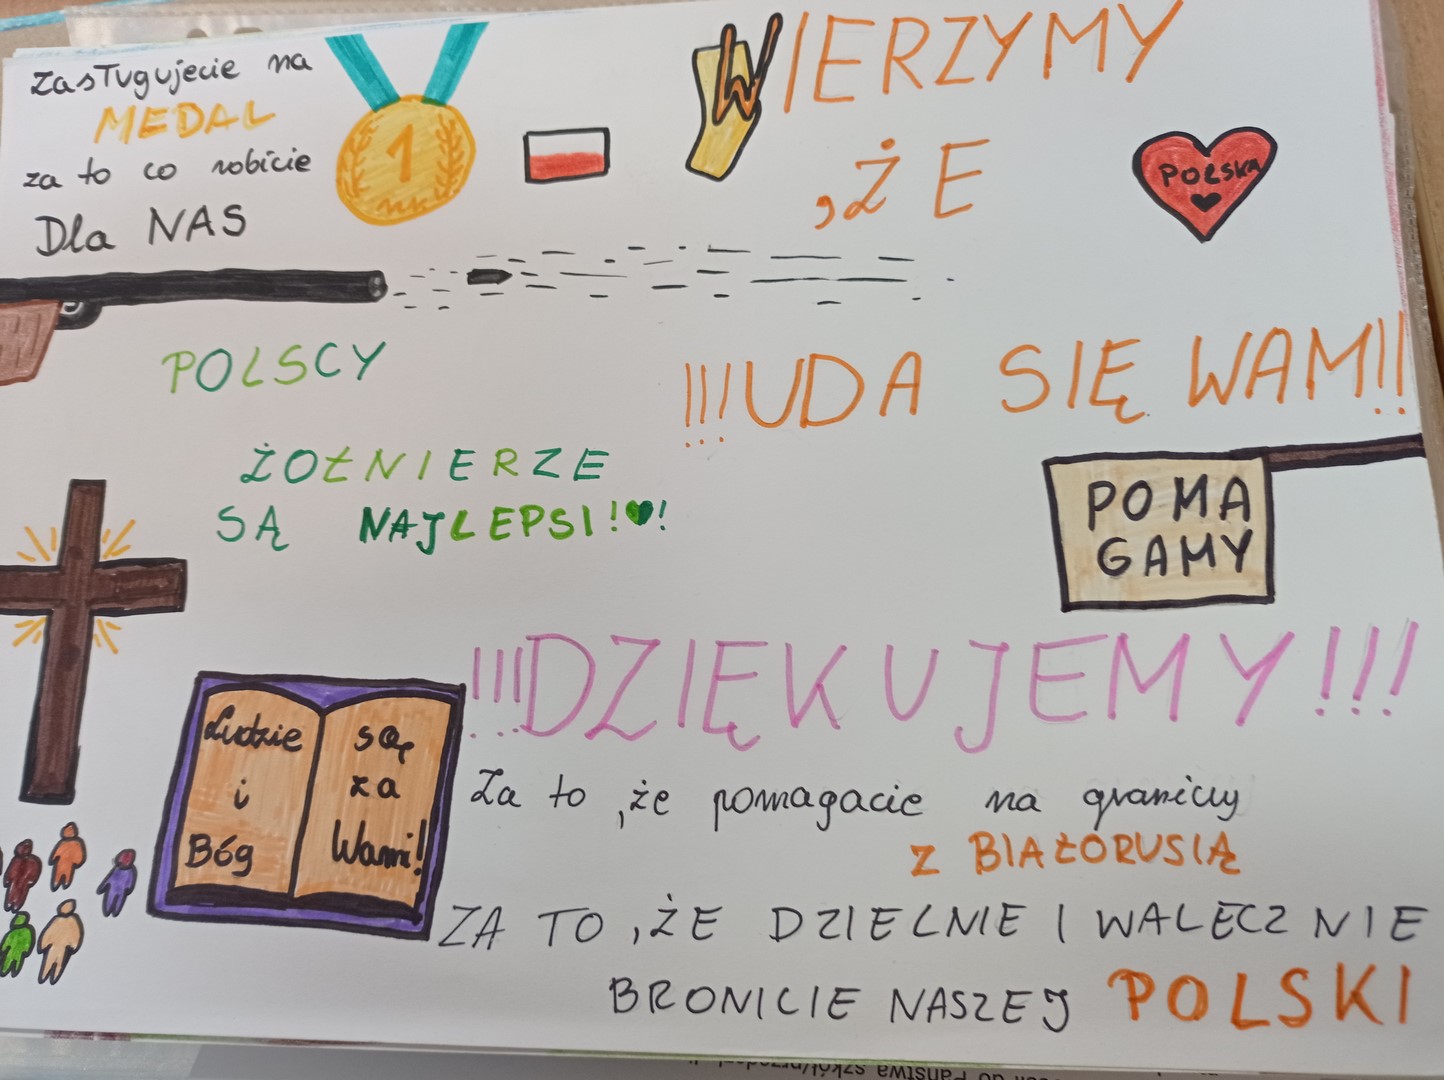 Zasługujecie na
MEDAL
za to co robicie
Dla NAS
1
WIERZYMY
,ŻE
POLSKA
!!!UDA SIĘ WAM!!
POLSCY
ŻOŁNIERZE
SĄ NAJLEPSI!♥!
POMA
GAMY
!!!DZIĘKUJEMY!!!
Za to ,że pomagacie na granicy
Z BIAŁORUSIĄ
ZA TO ,ŻE DZIELNIE I WALECZNIE
BRONICIE NASZEJ POLSKI
Ludzie
i
Bóg
są
za
Wami!